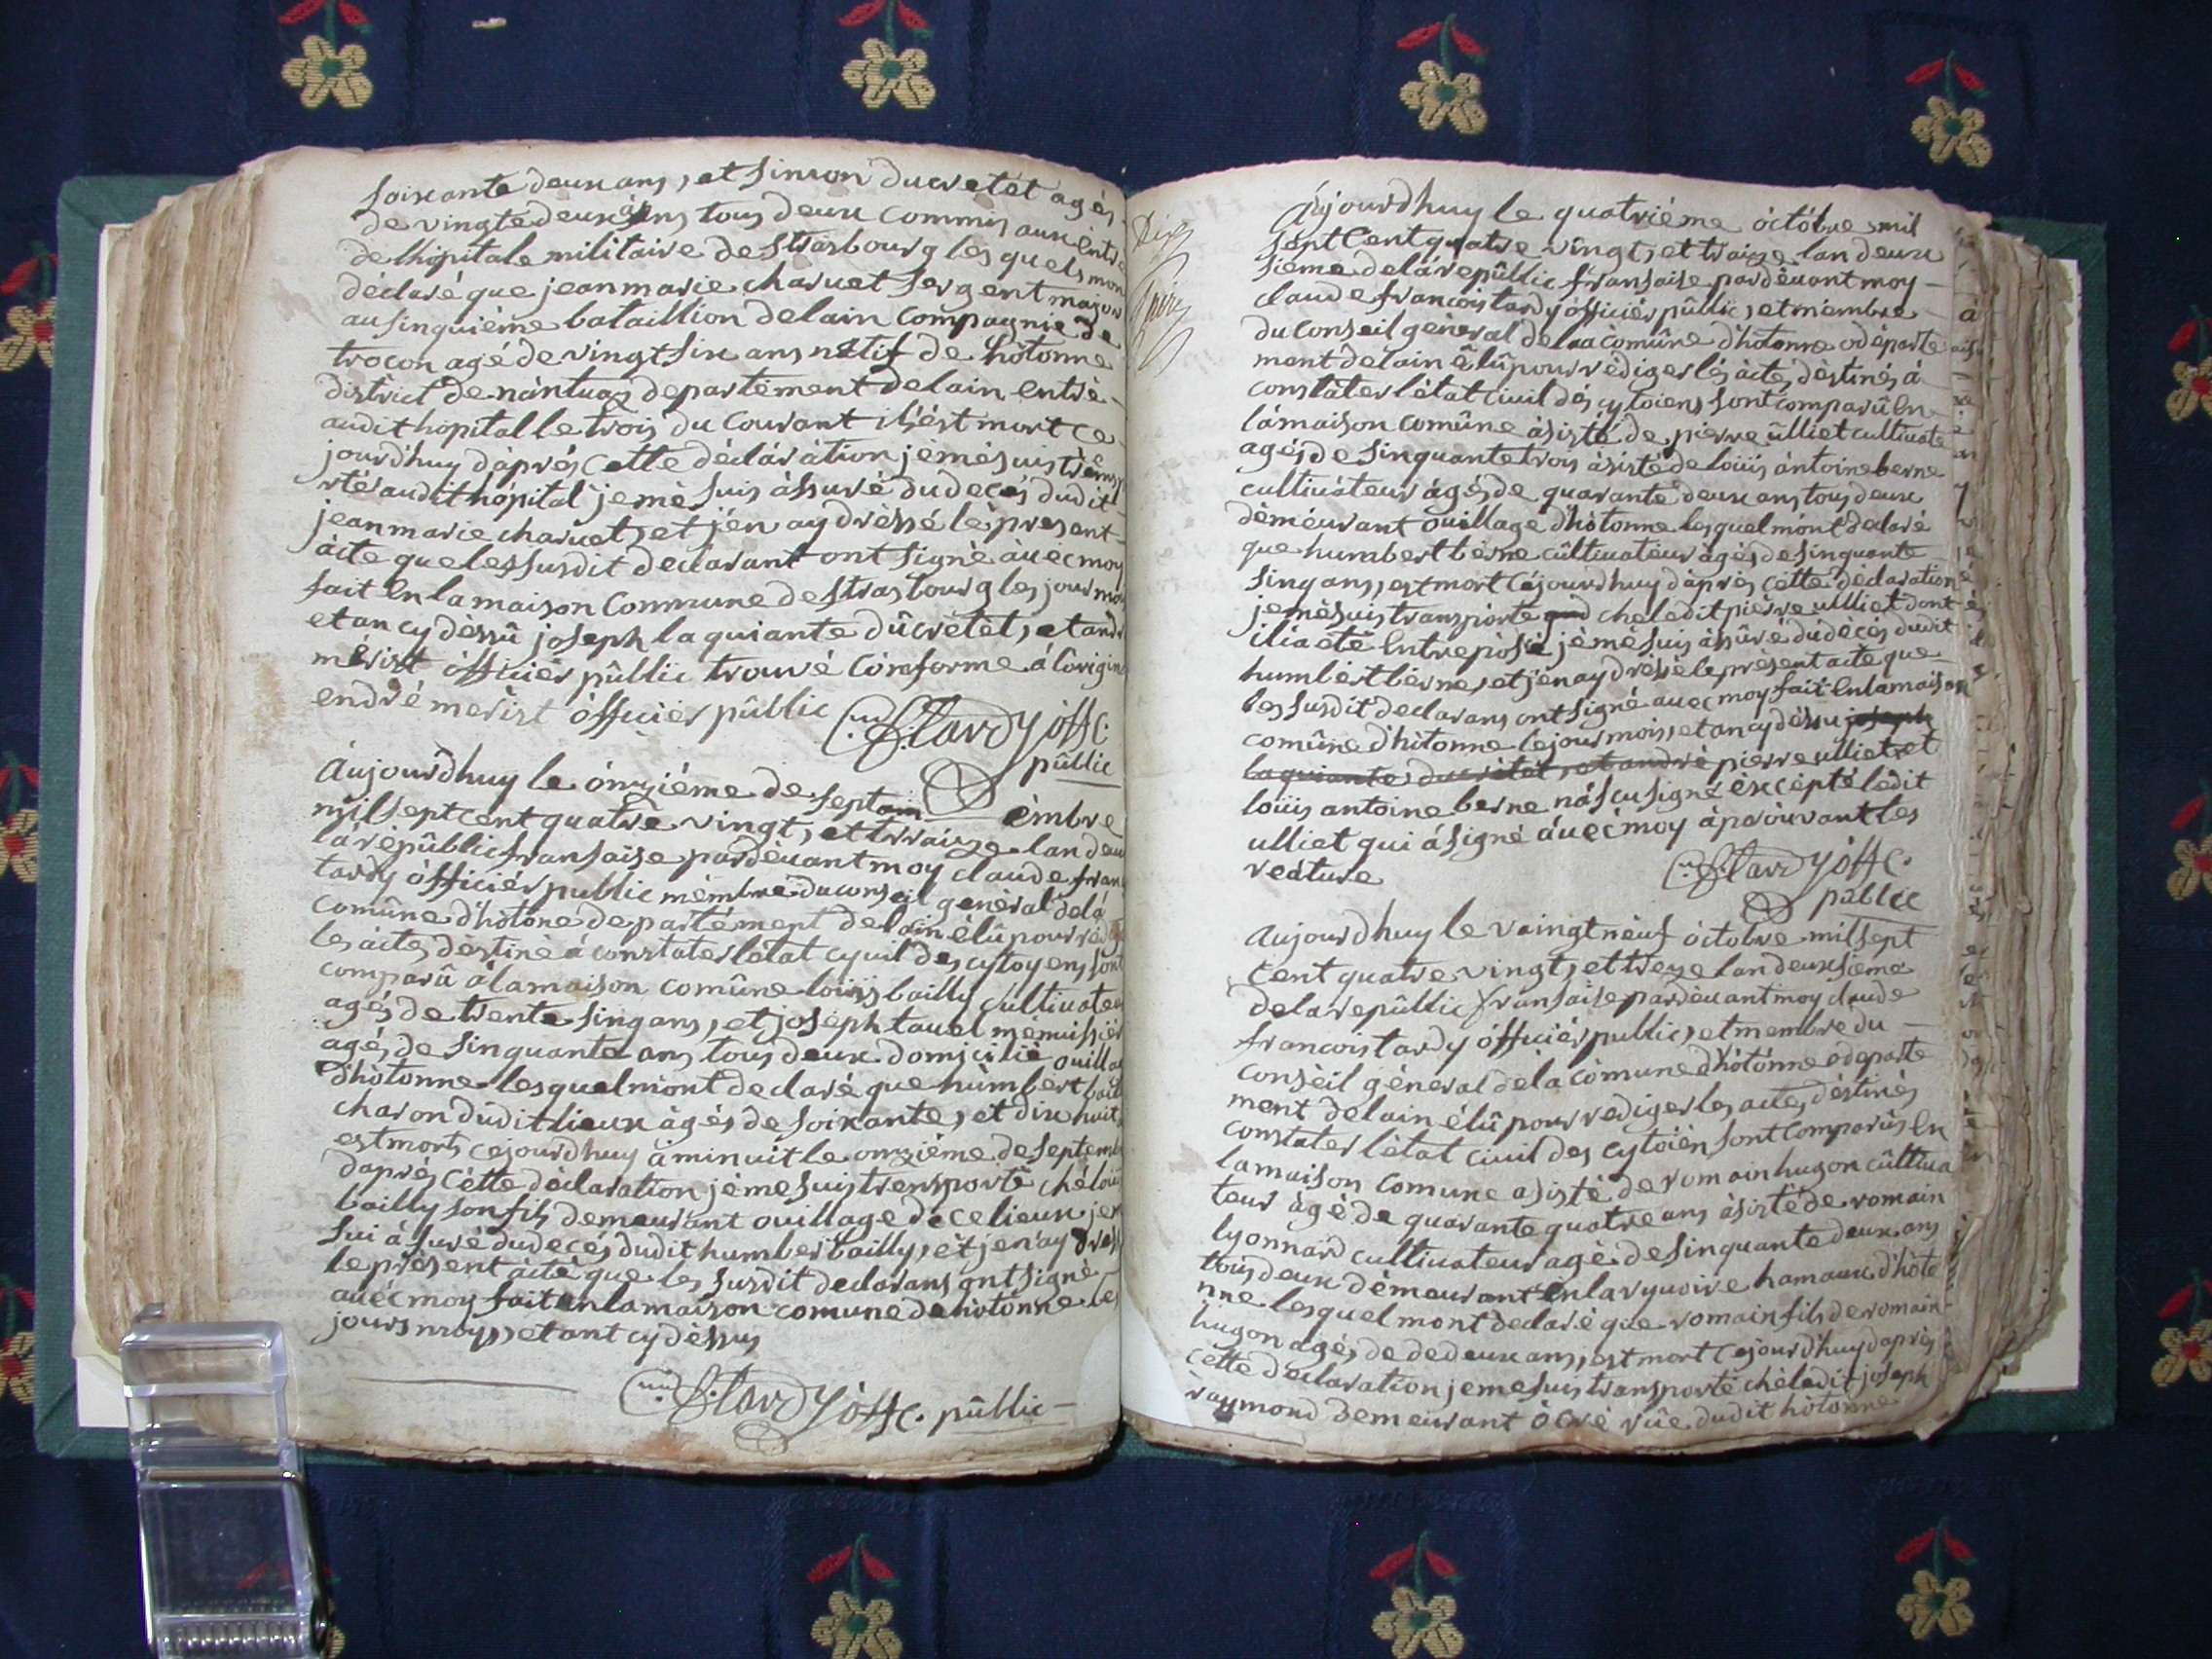 soixante deux ans, et simon ducretet agés
de vingte deux ans tous deux commis aux entré
de lhôpitale militaire de strasbourg les quels mon
déclaré que jean marie charvet sergent major
au sinquiéme bataillion de lain compagnie de
trocon agé de vingt six ans natif de hotonne
district de nantuas departement de lain entré
audit hopital le trois du courant il ést mort ce
jourdhuy dàprés cette déclaration jé mé suis
rté audit hôpital je mé suis àssuré du decés dudit
jean marie charvet, et jén ay dressé lé present
àcte que les susdit declarant ont signé àvec moy
fait en la maison commune de strasbourg les jour mo
et an cy dèssû joseph la quiante dûcrétèt, et andr
mérist ófficiér pûblic trouvé conforme á lórigin
endré merist ófficiér pûblic C. f. tardy óffc.
pûblic
Aujourdhuy le ónziéme de septembre
mil sept cent quatre vingt, et traize lan deux
la républic fransaise pardèvant moy claude fran
tardy ófficiér public mémbre du conseil genéral dela
comûne dhotone departément de lain élû pour rédig
les àcte, destiné á constater létat cyvil des cytoyens sont
comparû à la maison comûne loüis bailly cultivateu
agés de trente sinq ans, et joséph tavel menuissiér
agés de sinquante ans tous deux domicilié ou villag
dhotonne les quel mònt declaré que hùmbert bailly
charon dudit lieux àgés de soixante, et dix huit
est mort cejourdhuy à minuit le onziéme de septemb
dapres cètte déclaration jéme suis transporté ché loui
bailly son fils demeurant ou village dece lieux je m
sui àsuré du decés dudit humber bailly, et jen ay dres
le présent àcté que les susdit declarans ont signé
avéc moy fait en la maison comune de hotonne les
jours moys, et ant cy dèssus
C. f. tardy óffc. pûblic
Aujourdhuy le quatriéme óctóbre mil
sept cent quatre vingt, et traize lan deux
siéme de la républic fransaise pardèvant moy
claude francois tardy ófficiér pûblic, et mémbre
du conseil général de la comûne dhotonne départe
ment de lain élû pour rédiger lés àcte, déstinés á
constàter létat civil dés cytoiens sont comparû en
la maison comûne àsisté de pierre ûlliet cultivate
agés de sinquante trois àsisté de loüis àntoine berne
cultivàteur àgés de quarante deux ans tous deux
démeurant ou village dhotonne les quel mònt declaré
que humbert bérne cûltivatéur àgés de sinquante
sinq ans, est mort cejourdhuy dàprés cètte déclaration
je mé suis transporte ché ledit piérre ulliet dont
il a èté entreposé jé mé suis àssûré du décés dudit
humbért bérne, et jén ay dréssé le présent acte que
les susdit declarans ont signé avec moy fait en la maison
comûne dhotonne le jour mois, et an cy déssu joseph
la quiante ducretet, et andré pierre ulliet et
loüis antoine berne nás cu signé éxcépté lédit
ulliet qui á signé ávec moy àproùvant les
reature C. f. tardy óffc.
pûblic
Aujourdhuy le vaingt néuf óctobre mil sept
cent quatre vingt, et treze lan deuxsiéme
de la repûblic fransaise pardèvant moy claude
francois tardy ófficiér public, et membre du
conséil géneral dé la comune dhótónne departe
ment de lain élû pour rediger les acte, déstinés
constater létat civil des cytoién sont comparûs en
la maison comune asisté de romain hugon cûltiva
teur àgé de quarante quatre ans àsisté de romain
lyonnard cultivateur agé de sinquante deux ans
tous deux démeurant en la ryvoire hamaux dhoto
nne les quel mont declaré que romain fils de romain
hugon agés de de deux ans, est mort cejourdhuy daprés
cétte declaration je me suis transporté ché ledit joséph
raymond demeurant ó cré rûe dudit hotonne